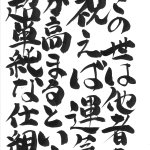 この世は他者
祝えば運気
が高まるとい
超単純な仕組